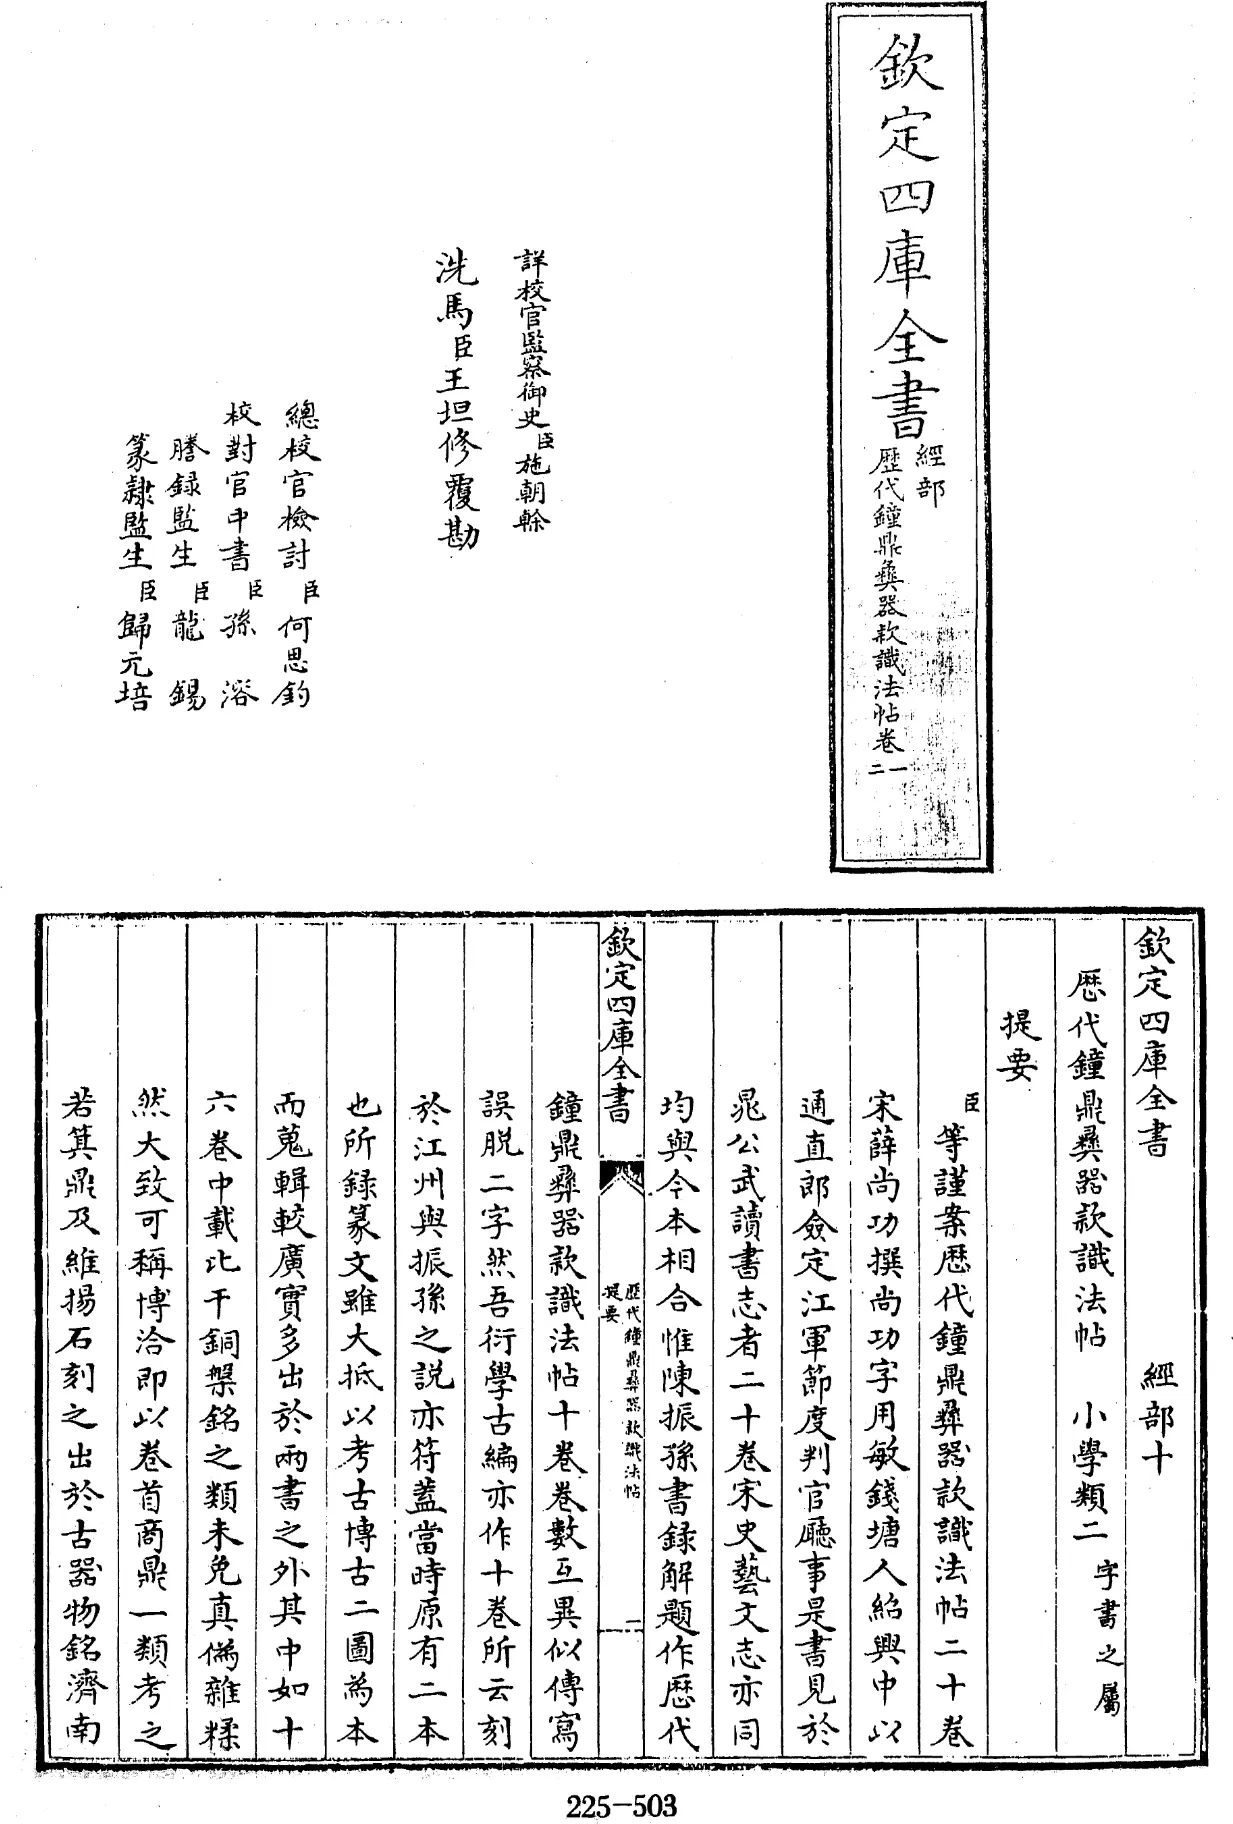 欽定四庫全書
經部
歷代鐘鼎彝器款識法帖卷一
二
詳校官監察御史臣施朝榦
洗馬臣王坦修覆勘
總校官檢討臣何思鈞
校對官中書臣孫溶
謄錄監生臣龍錫
篆隸監生臣歸元培
欽定四庫全書 經部十
歷代鐘鼎彝器款識法帖 小學類二 字書之屬
提要
臣等謹案歷代鐘鼎彝器款識法帖二十卷
宋薛尚功撰尚功字用敏錢塘人紹興中以
通直郎僉定江軍節度判官廳事是書見於
晁公武讀書志者二十卷宋史藝文志亦同
均與今本相合惟陳振孫書錄解題作歷代
欽定四庫全書
歷代鐘鼎彝器款識法帖
提要
一
鐘鼎彝器款識法帖十卷卷數互異似傳寫
誤脱二字然吾衍學古編亦作十卷所云刻
於江州與振孫之説亦符蓋當時原有二本
也所録篆文雖大抵以考古博古二圖為本
而蒐輯較廣實多出於兩書之外其中如十
六卷中載比干銅槃銘之類未免真偽雜糅
然大致可稱博洽即以卷首商鼎一類考之
若箕鼎及維揚石刻之出於古器物銘濟南
225-503